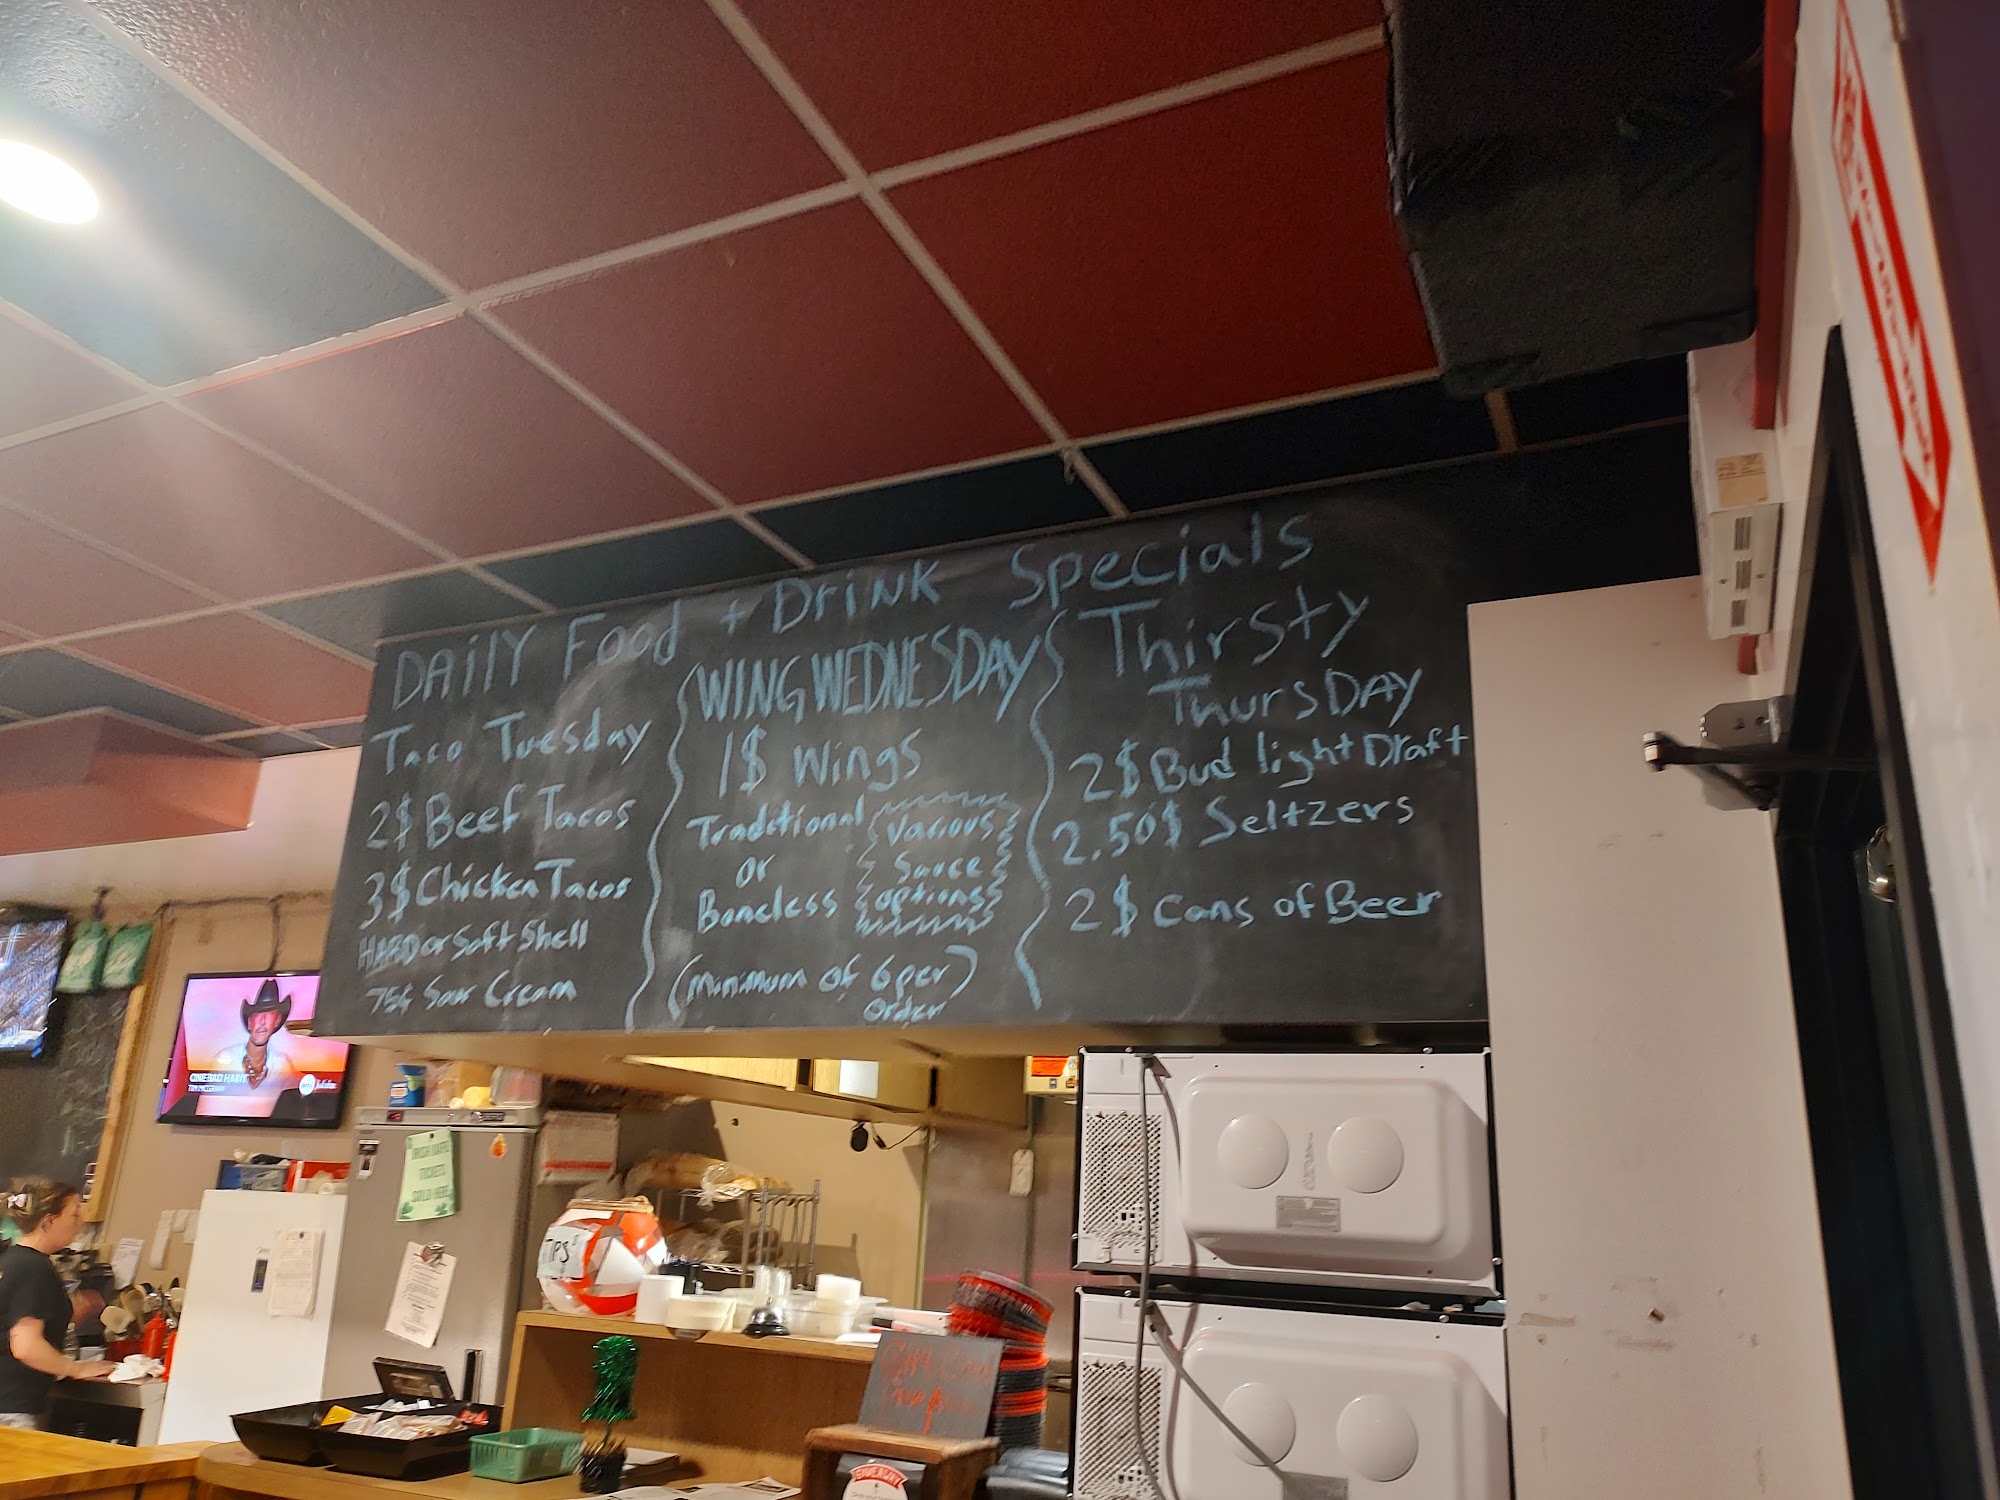 DAilY Food + Drink Specials
Taco Tuesday
2$ Beef Tacos
3$ Chicken Tacos
HARD or Soft Shell
75¢ Sour Cream
WING WEDNESDAY
1$ Wings
Traditional
or
Boneless
Various
Sauce
options
(Minimum of 6 per)
Order
Thirsty
ThursDAY
2$ Bud light Draft
2.50$ Seltzers
2$ Cans of Beer
ONE BAD HABIT
TIM MCGRAW
TICKETS
SOLD HERE
TIPS
Gift Card
GIVEAWAY